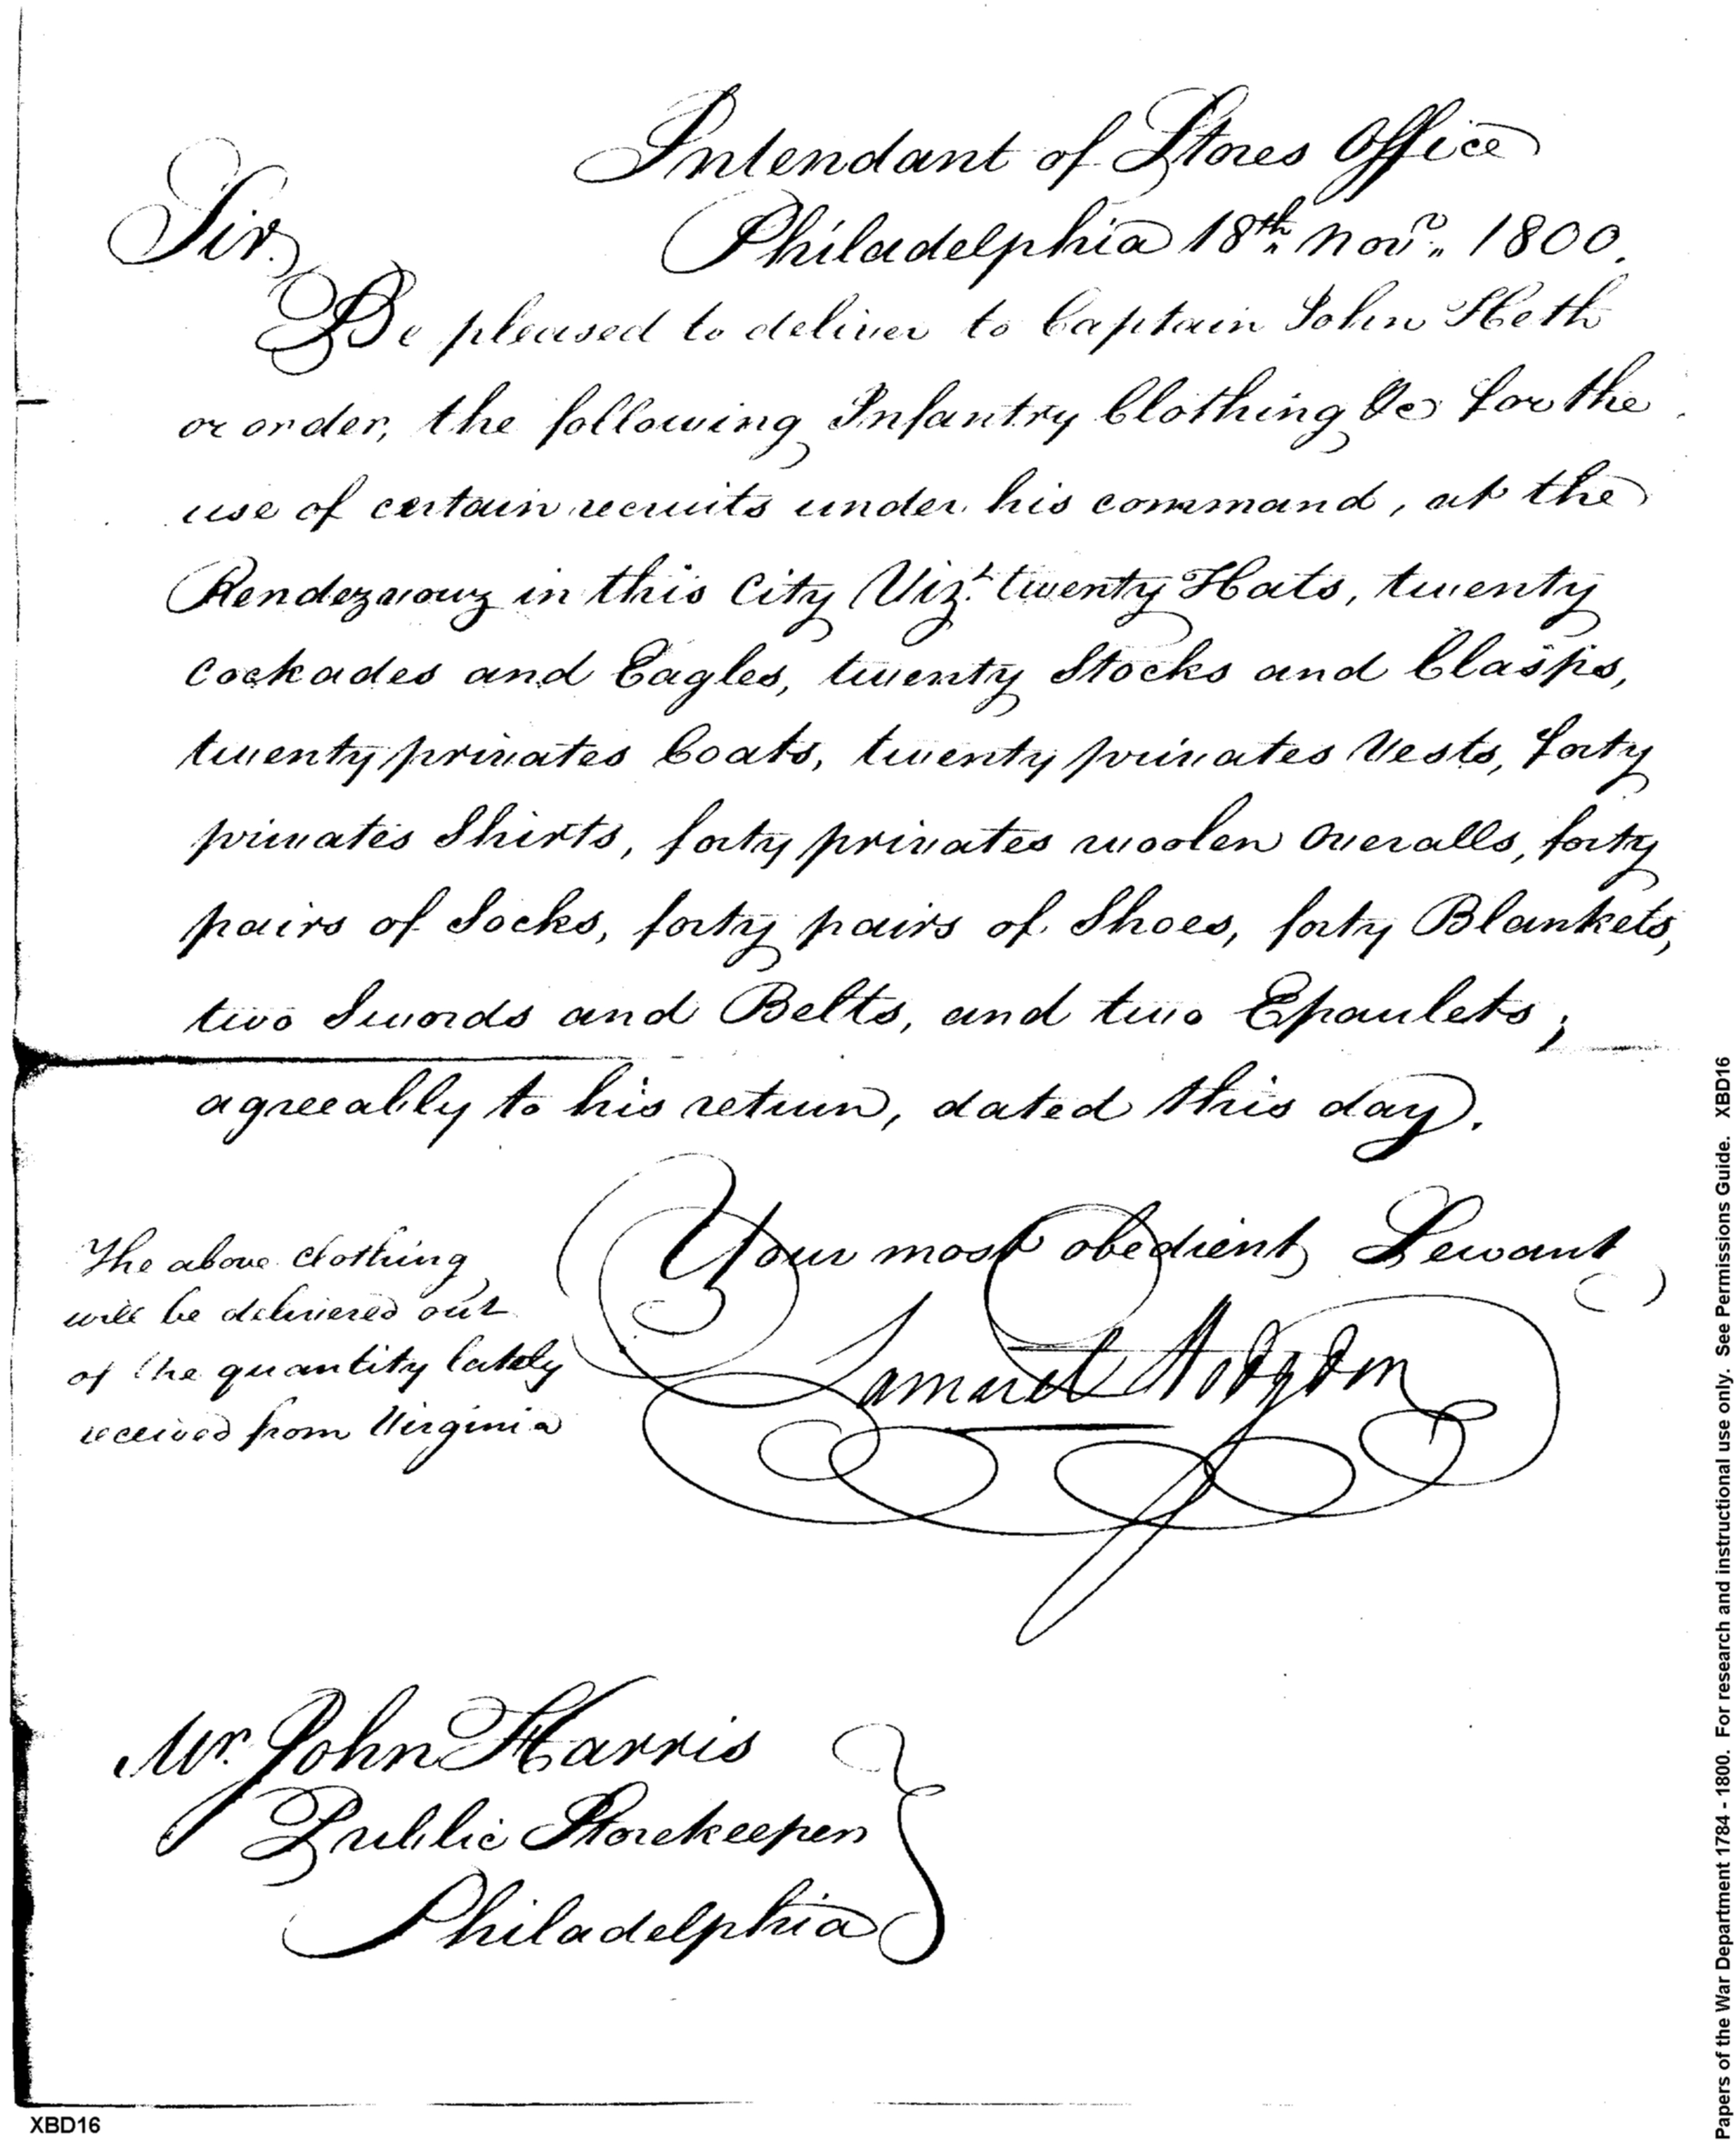 Intendant of Stores Office
Philadelphia 18th Novr. 1800.
Sir.
Be pleased to deliver to Captain John Heth
or order, the following Infantry Clothing &c for the
use of certain recruits under his command, at the
Rendezvouz in this City Vizt. twenty Hats, twenty
Cockades and Eagles, twenty Stocks and Clasps,
twenty privates Coats, twenty privates Vests, forty
privates Shirts, forty privates woolen Overalls, forty
pairs of Socks, forty pairs of Shoes, forty Blankets,
two Swords and Belts, and two Epaulets;
agreeably to his return, dated this day.
Your most obedient Servant
Samuel Hodgdon
The above clothing
will be delivered out
of the quantity lately
received from Virginia
Mr. John Harris
Public Storekeeper
Philadelphia
XBD16
Papers of the War Department 1784 - 1800. For research and instructional use only. See Permissions Guide. XBD16